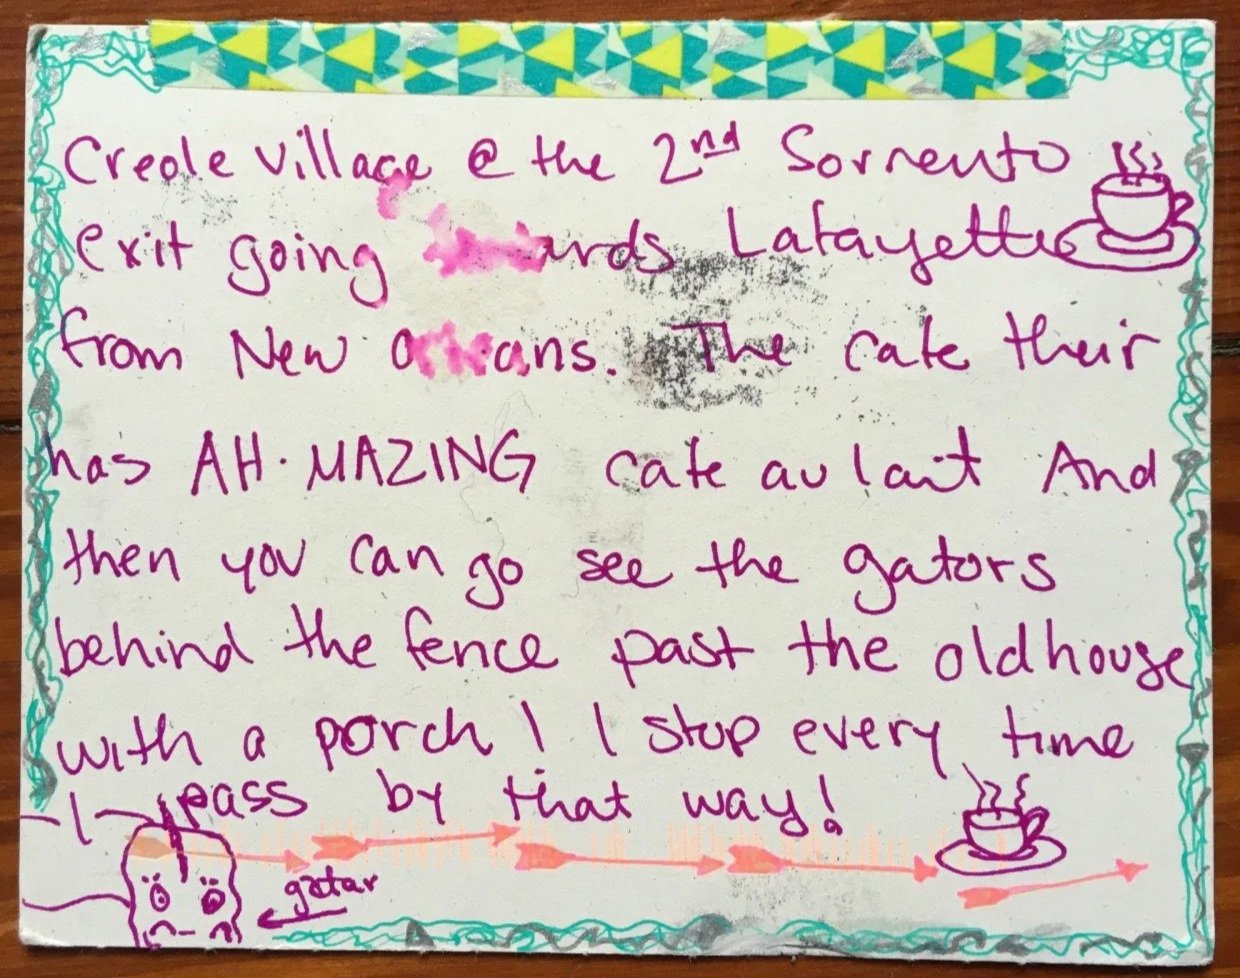 Creole Village @ the 2nd Sorrento
exit going Lafayette
from New. The cafe their
has AH·MAZING cafe au lait And
then you can go see the gators
behind the fence past the old house
with a porch! I stop every time
I pass by that way!
gatar